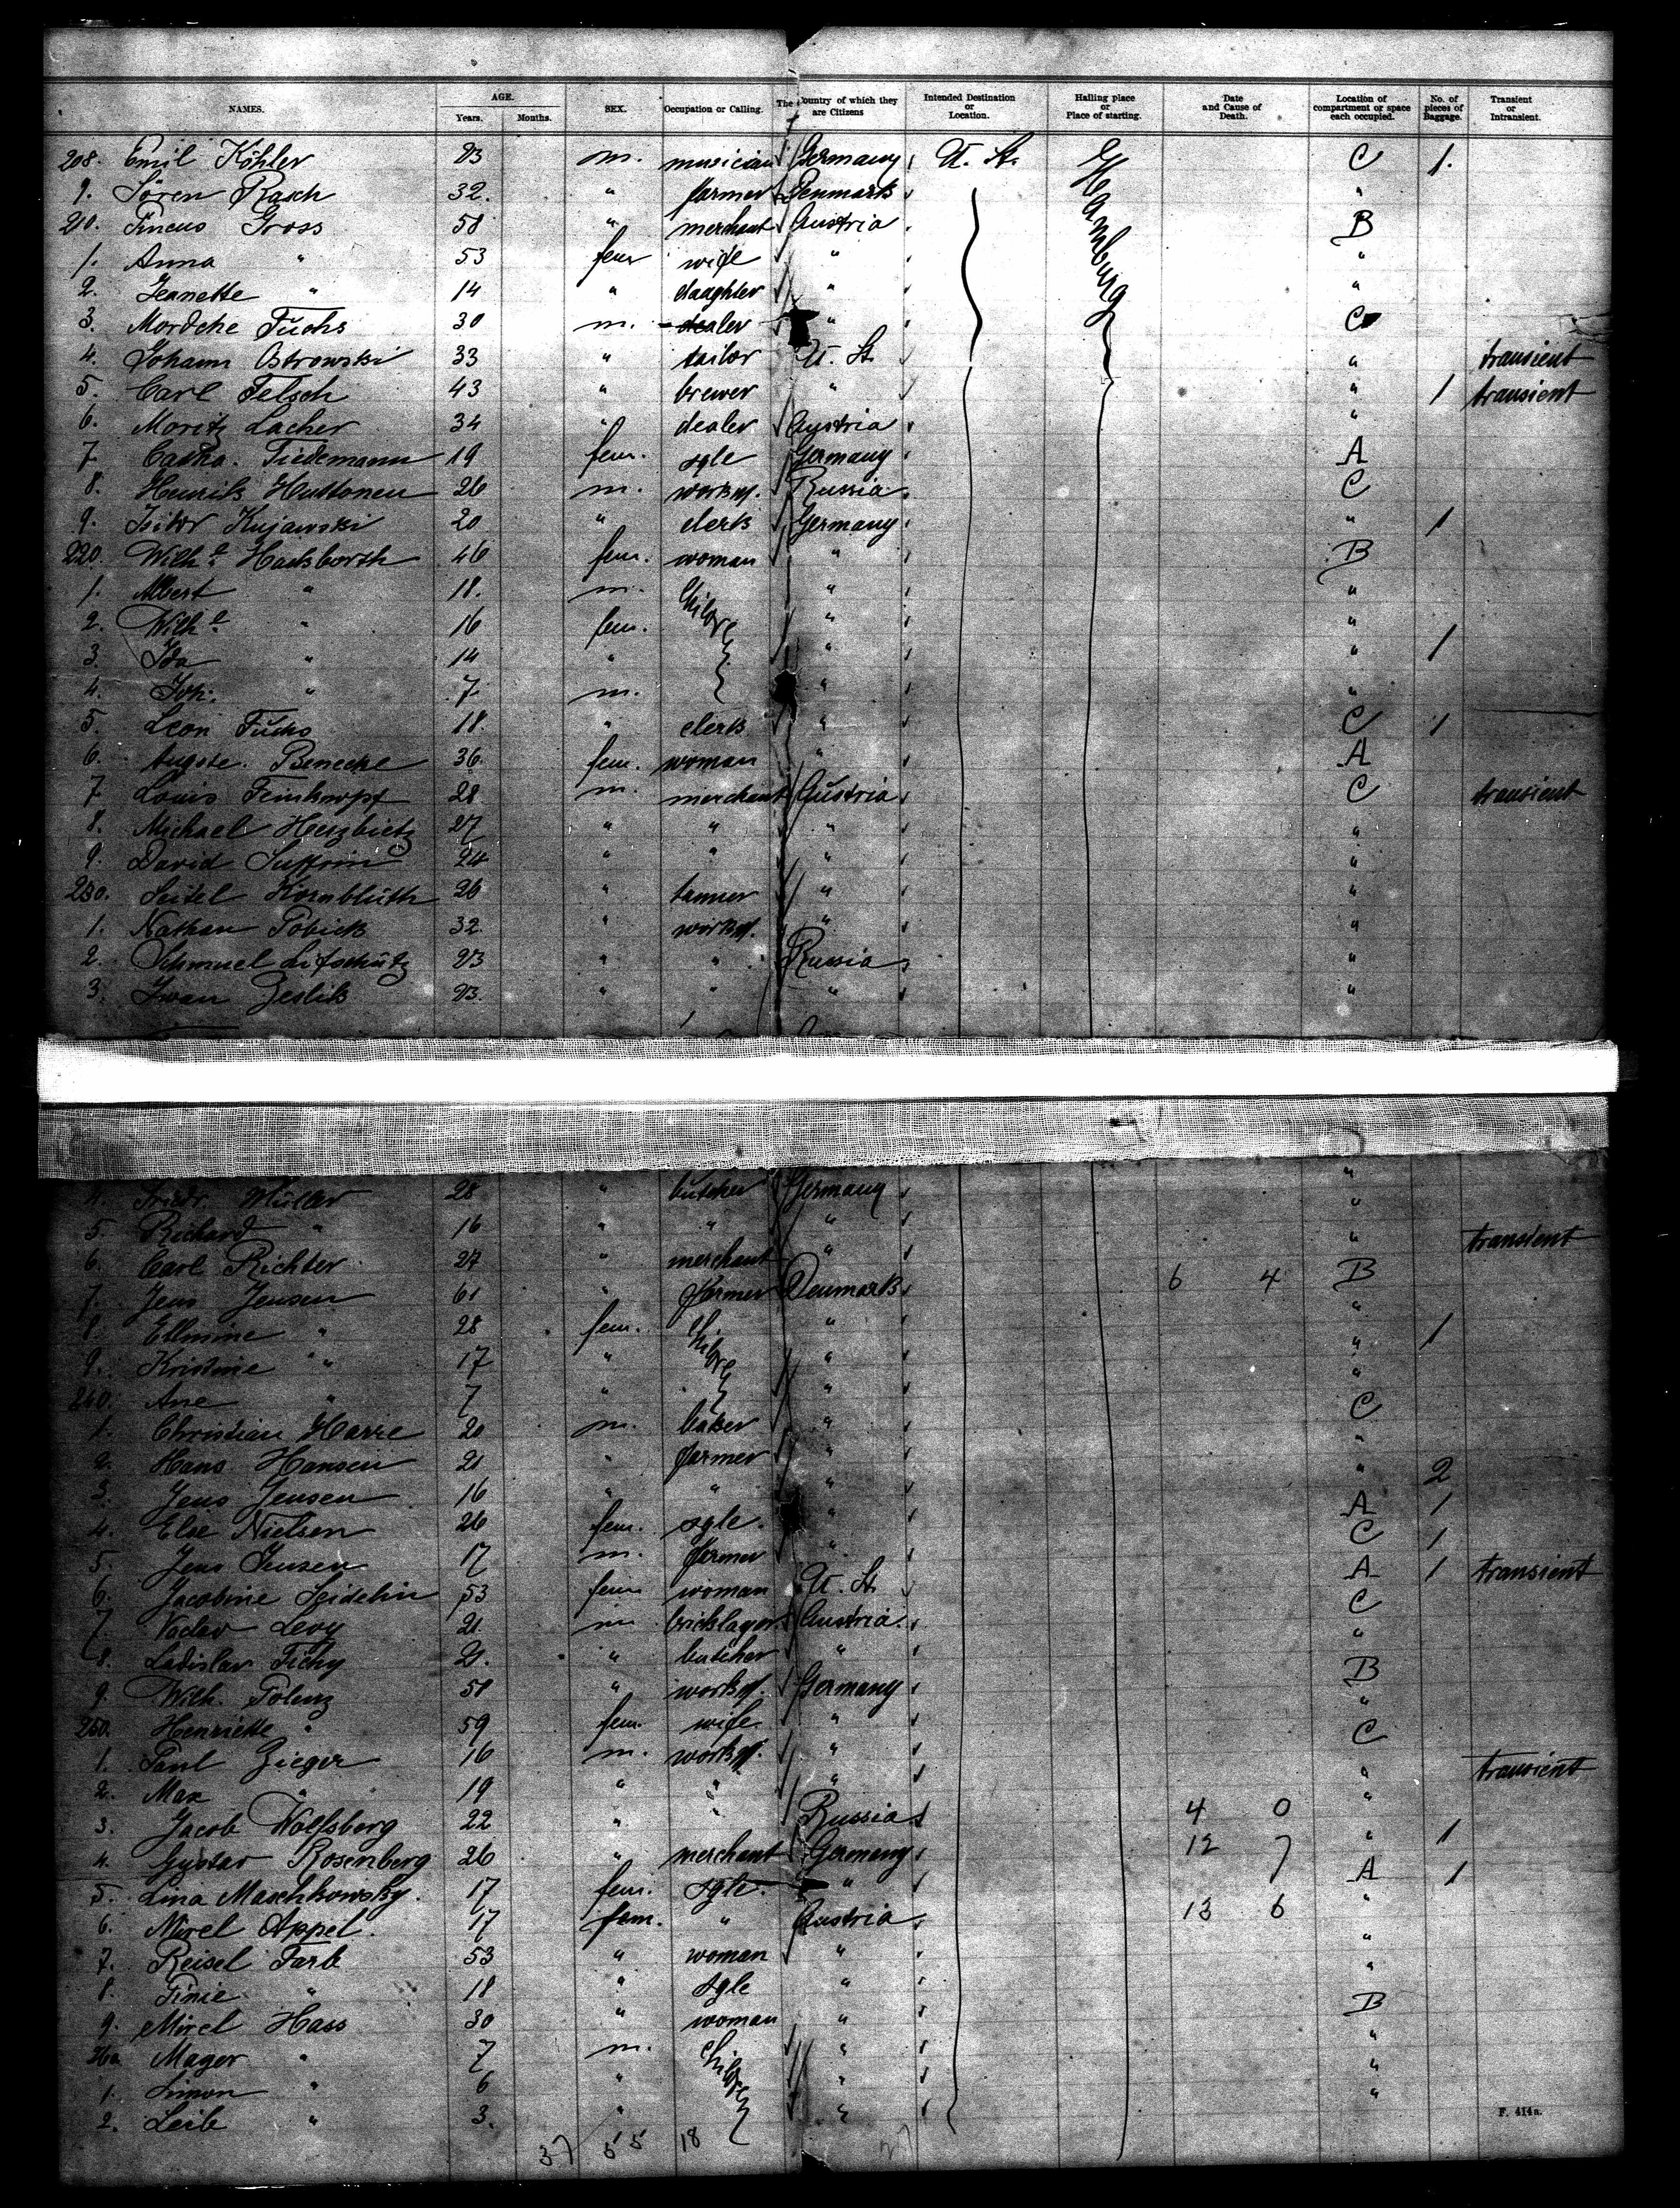 NAMES. AGE. Years. Months. SEX. Occupation or Calling. The Country of which they are Citizens Intended Destination or Location. Halling place or Place of starting. Date and Cause of Death. Location of compartment or space each occupied. No. of pieces of Baggage. Transient or Intransient.
208. Emil Köhler 23 m. musician Germany U. St. Hamburg C 1.
9. Sören Rasch 32. " farmer Denmark "
210. Pincus Gross 58 " merchant Austria B
1. Anna " 53 fem wife " "
2. Jeanette " 14 " daughter " "
3. Mordche Fuchs 30 m. dealer " C
4. Johann Ostrowski 33 " tailor U. St. " transient
5. Carl Felsch 43 " brewer " " 1 transient
6. Moritz Lacher 34 " dealer Austria "
7 Cathа. Tiedemann 19 fem. sgle Germany A
8. Henrik Huttonen 26 m. workm. Russia C
9. Isidor Kujawski 20 " clerk Germany " 1
220. Wilh.e Hacksborth 46 fem. woman " B
1. Albert " 18. m. children " "
2. Wilh.e " 16 fem. " "
3. Ida " 14 " " " 1
4. Joh. " 7 m. " "
5. Leon Fuchs 18. " clerk " C 1
6. Auguste Benecke 36 fem. woman " A
7 Louis Feinkopf 28 m. merchant Austria C transient
8. Michael Herzbietz 27 " " " "
9. David Suffrin 24 " " " "
230. Seitel Kornblüth 26 " tanner " "
1. Nathan Pobick 32. " workm. " "
2. Schmuel Lifschütz 23 " " Russia "
3. Iwan Zeslik 23. " " " "
4. Friedr. Müller 28 " butcher Germany "
5. Richard " 16 " " " "
6. Carl Richter 27 " merchant " " transient
7. Jens Jensen 61 " farmer Denmark 6 4 B
8. Ellmine " 28 fem. children " "
9. Kristine " 17 " " " 1
240. Ane " 7 " " "
1. Christian Harre 20 m. baker " C
2. Hans Hansen 21 " farmer " "
3. Jens Jensen 16 " " " " 2
4. Else Nielsen 26 fem. sgle. " A 1
5. Jens Jensen 17 m. farmer " C 1
6. Jacobine Seidelin 53 fem woman U. St. A 1 transient
7 Vaclav Levy 21. m bricklayer Austria C
8. Ladislav Tichy 21. " butcher " "
9. Wilh. Polenz 58 " workm. Germany B
250. Henriette " 59 fem. wife " "
1. Paul Zieger 16 m. workm. " C
2. Max " 19 " " " " transient
3. Jacob Wolfsberg 22 " " Russia 4 0 "
4. Gustav Rosenberg 26 " merchant Germany 12 7 " 1
5. Lina Maschkowsky. 17 fem. sgle. " A 1
6. Mirel Appel. 17 fem. " Austria 13 6 "
7. Reisel Farb 53 " woman " "
8. Finie " 18 " sgle " "
9. Mirel Hass 30 " woman " B
260. Mayer " 7 m. children " "
1. Simon " 6 " " "
2. Leib " 3. " " "
37 55 18
F. 414a.